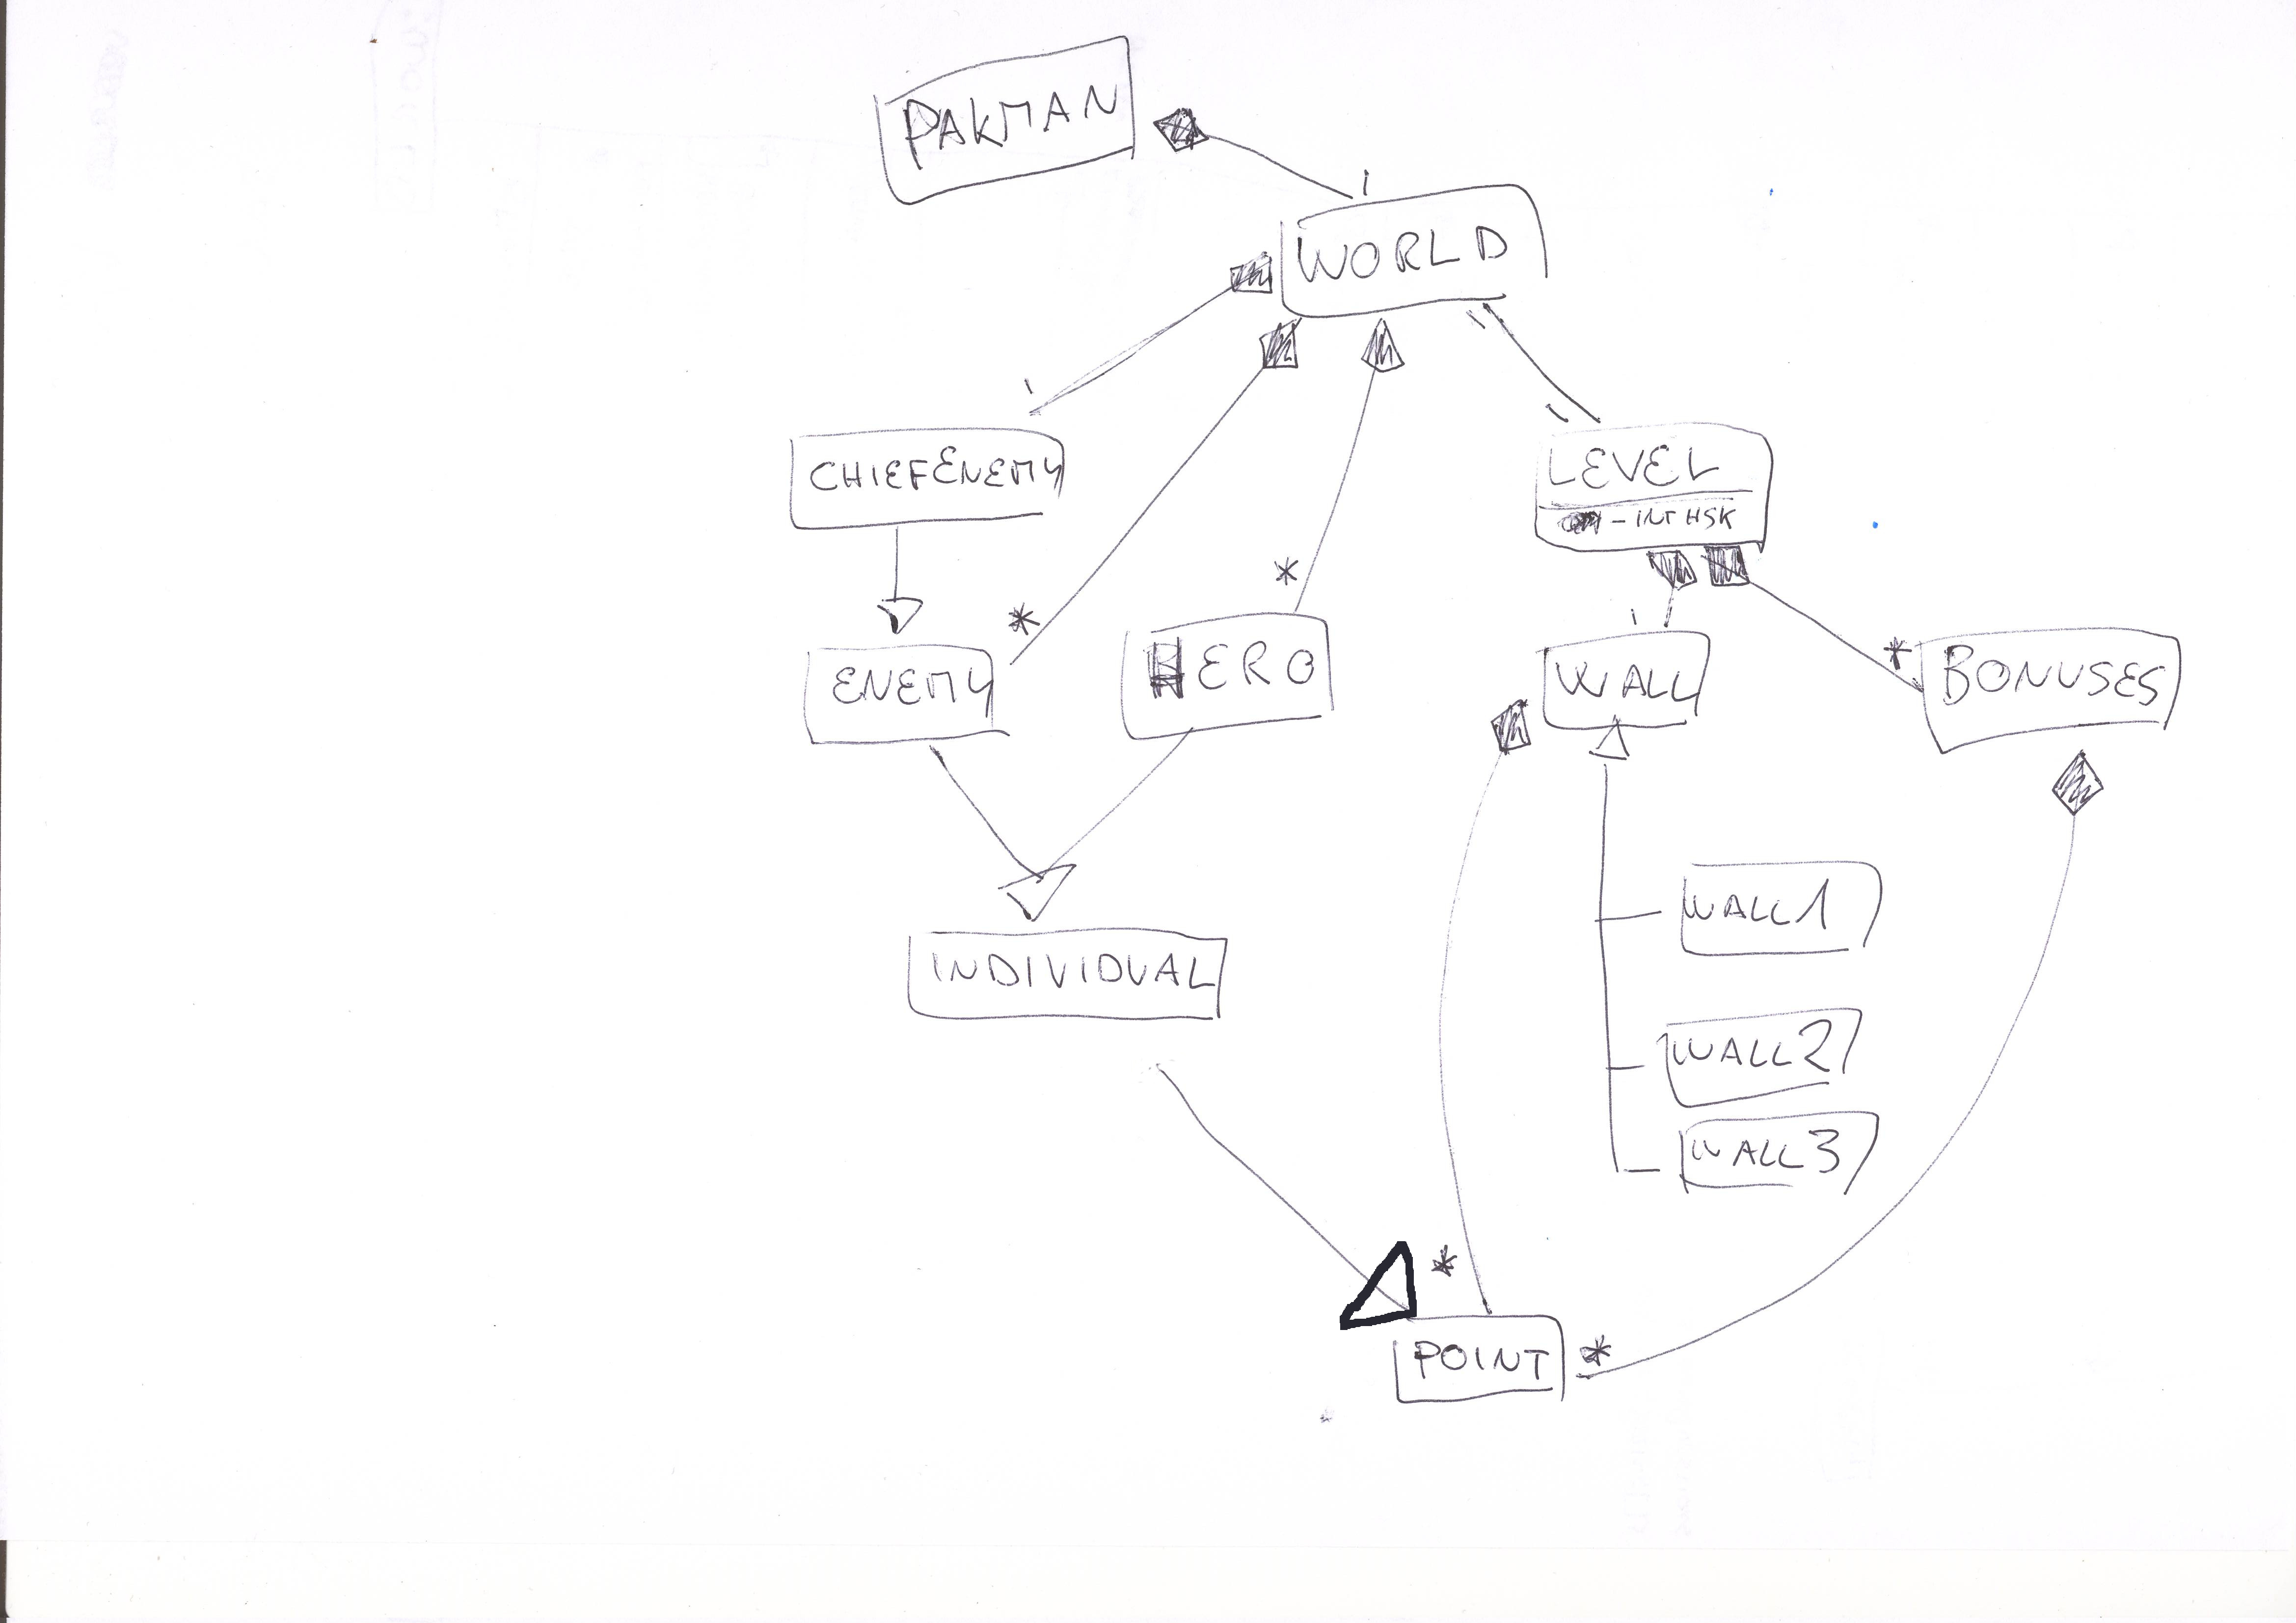 PAKMAN
1
WORLD
1
1
1
CHIEFENEMY
LEVEL
- INT HSK
*
*
1
*
ENEMY
HERO
WALL
BONUSES
WALL1
INDIVIDUAL
WALL2
WALL3
*
POINT
*